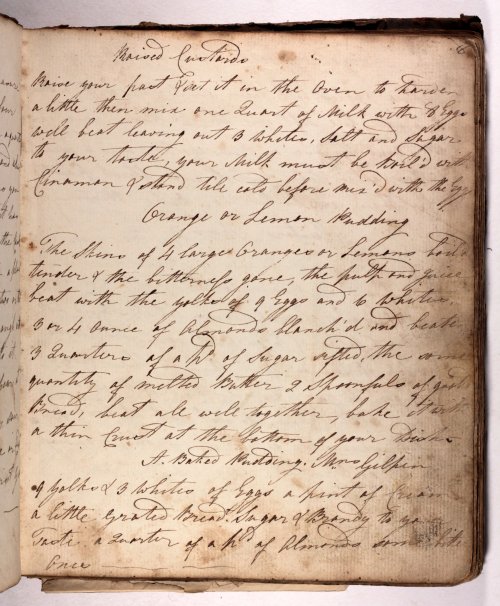 Raised Custards
Raise your past & set it in the Oven to harden
a little then mix one Quart of Milk with 8 Eggs
well beat leaving out 3 Whites, Salt and Sugar
to your taste, your Milk must be boil'd with
Cinamon & stand tile cold before mix'd with the Egg
Orange or Lemon Pudding
The Skins of 4 large Oranges or Lemons boil'd
tender & the bitterness gone, the pulp and juice
beat with the yolks of 9 Eggs and 6 Whites
3 or 4 Ounce of Almonds blanch'd and beat
3 Quarters of a pd of Sugar sifted, the same
quantity of melted Butter 2 Spoonfuls of
Bread, beat all well together, bake it with
a thin Crust at the bottom of your Dish
A Baked Pudding. Mrs Gilpin
4 yolks & 3 Whites of Eggs a pint of Cream
a little Grated Bread Sugar & Brandy to
Taste a Quarter of a pd of Almonds some
Ones